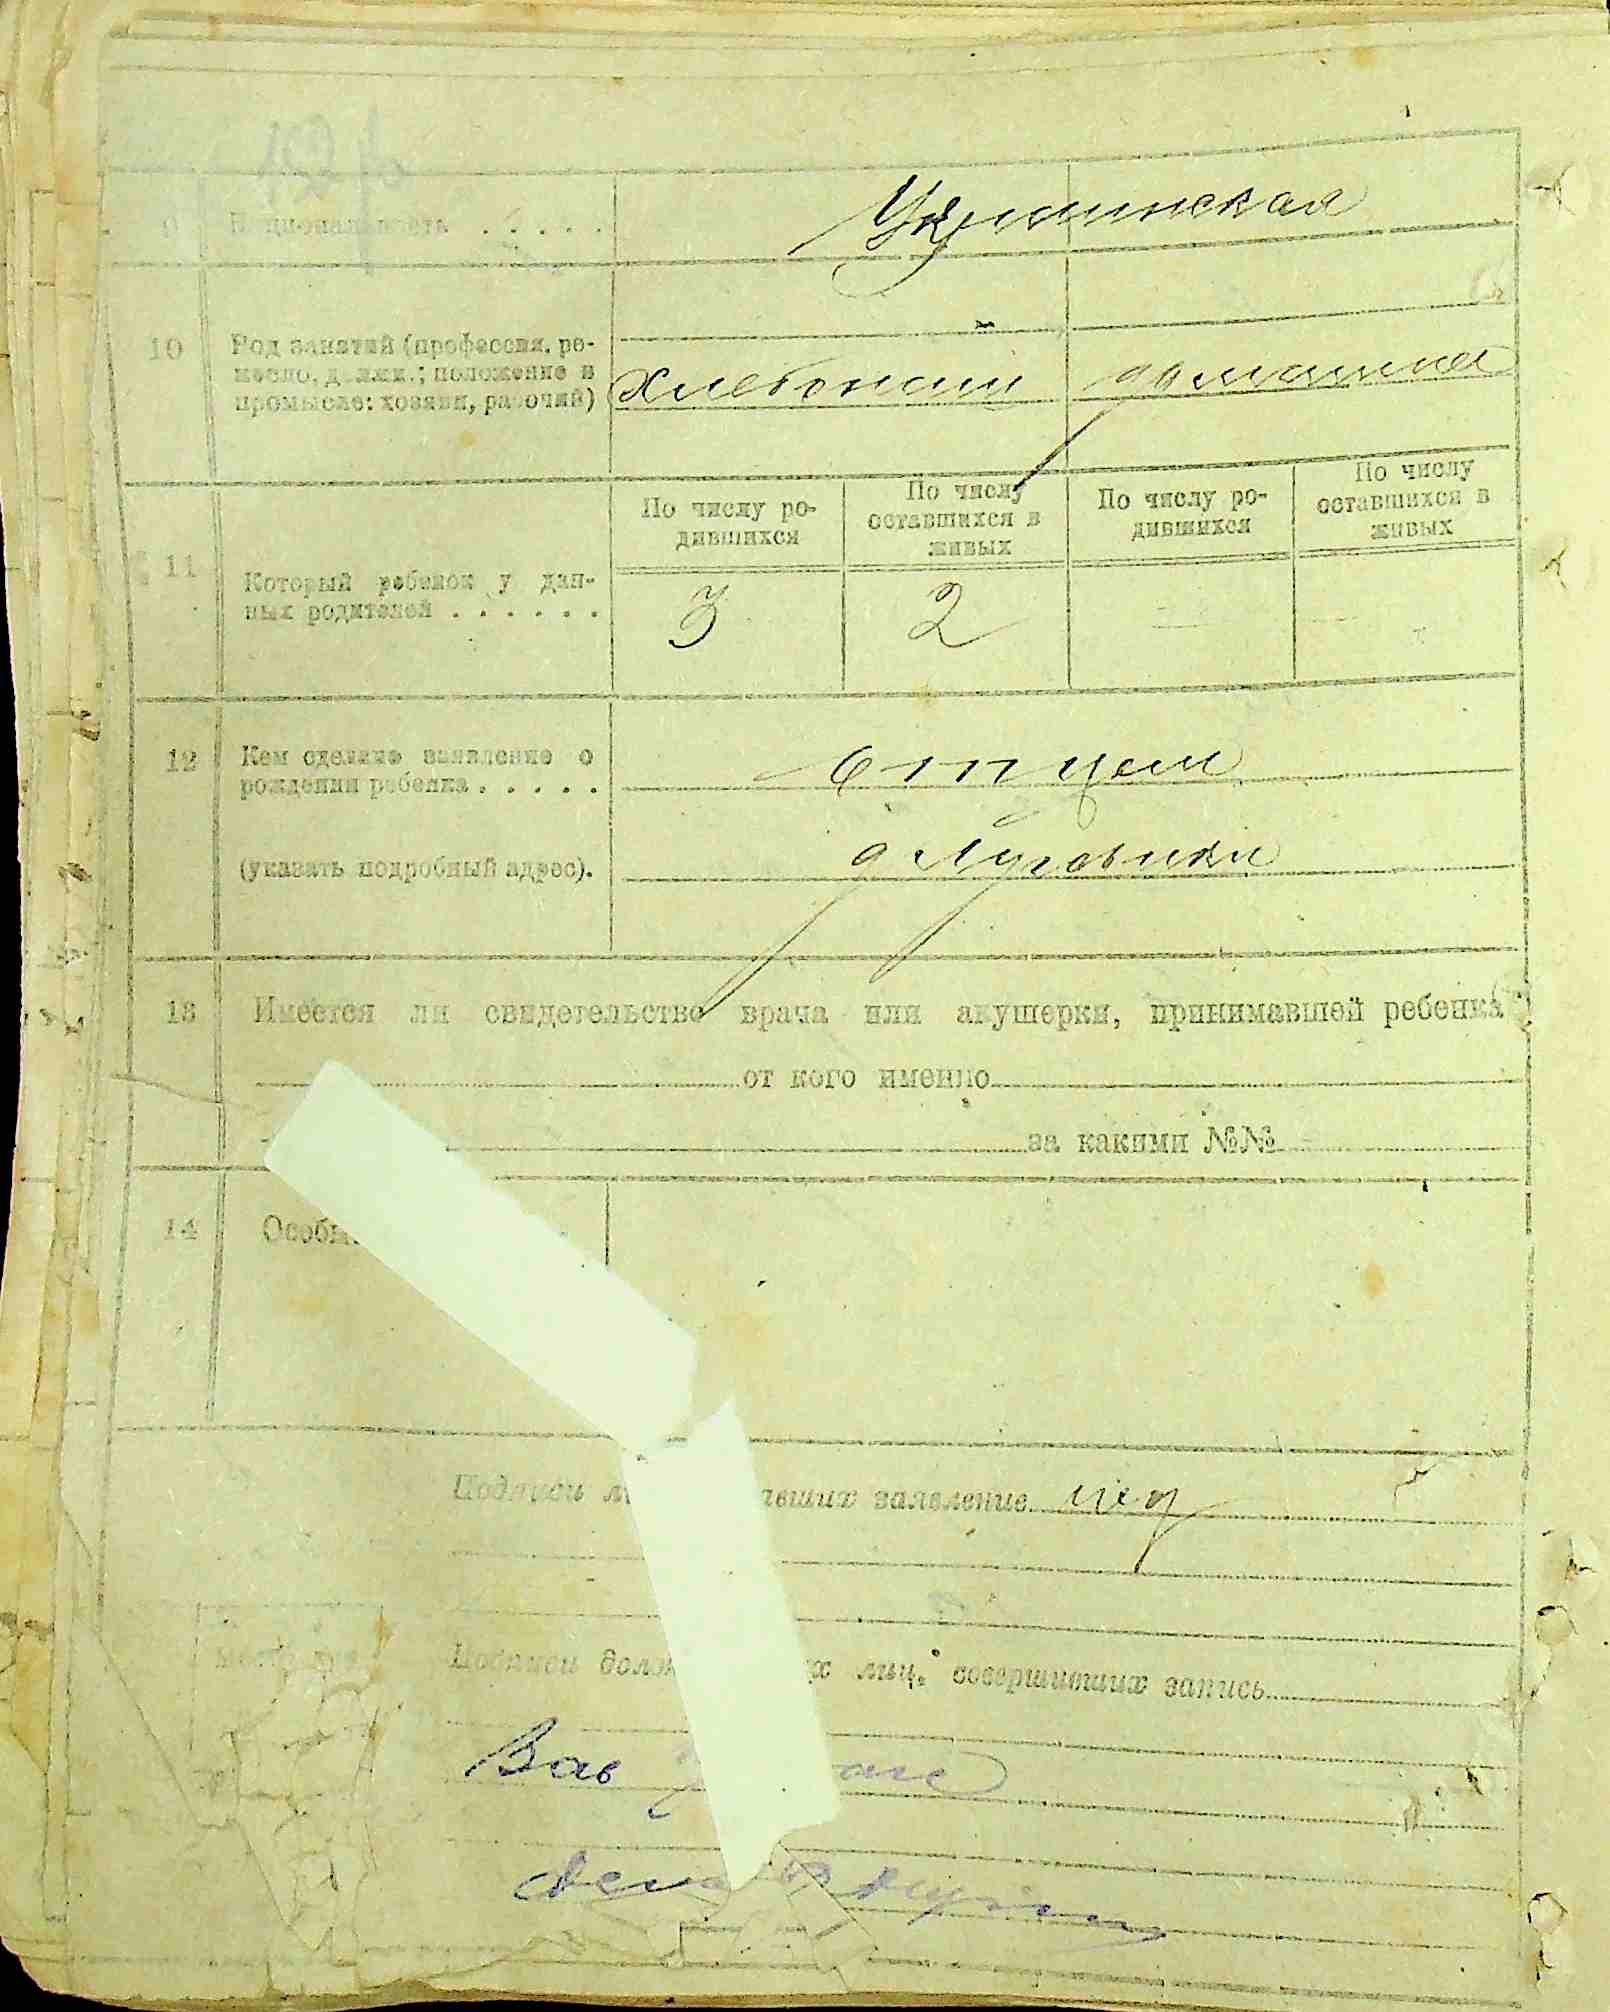 9 Национальность . . . . .
Украинская
10 Род занятий (профессия, ре-
месло, должн.; положение в
промысле: хозяин, рабочий)
Хлебопаш домашнее
11 Который ребенок у дан-
ных родителей . . . . . .
По числу ро-
дившихся
По числу
оставшихся в
живых
По числу ро-
дившихся
По числу
оставшихся в
живых
3 2
12 Кем сделано заявление о
рождении ребенка . . . . .
отцем
(указать подробный адрес).
д Луговики
13 Имеется ли свидетельство врача или акушерки, принимавшей ребенка
от кого именно
за какими №№
14
Подписи заявление
Подписи лиц, совершивших запись
Зав